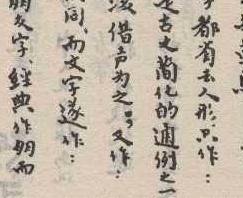 字都省去人形，只作：
是古文簡化的通例之一
後借声为之，又作：
同，而文字遂作：
朋友字、經典作朋而